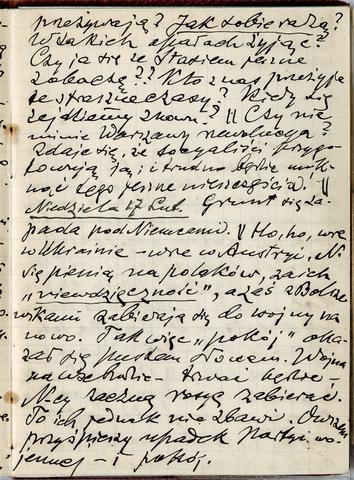 przeżywają? Jak sobie radzą?
W jakich opałach żyjąc?
Czy ja się ze Stasiem jeszcze
zobaczę?? Kto z nas przeżyje
te straszne czasy? Kiedy się
zejdziemy znowu? || Czy nie
minie Warszawy rewolucja?
Zdaje się, że socyaliści przygo-
towują ją; i trudno będzie unik-
nąć tego jeszcze nieszczęścia. ||
Niedziela 17 Lut. Grunt się za-
pada pod Niemcami. || Ho, ho, wre
w Ukrainie - wre w Austryi. N
się pienią na polaków, za ich
„niewdzięczność", a zaś z Bolsze-
wikami zabierają się do wojny na
nowo. Tak więc „pokój" oka-
zał się pustem słowem. Wojna
na wschodzie - trwać będzie -
N-cy zaczną rosyę zabierać.
To ich jednak nie zbawi. Owszem
przyśpieszy upadek Partyi wo-
jennej - i pokój.